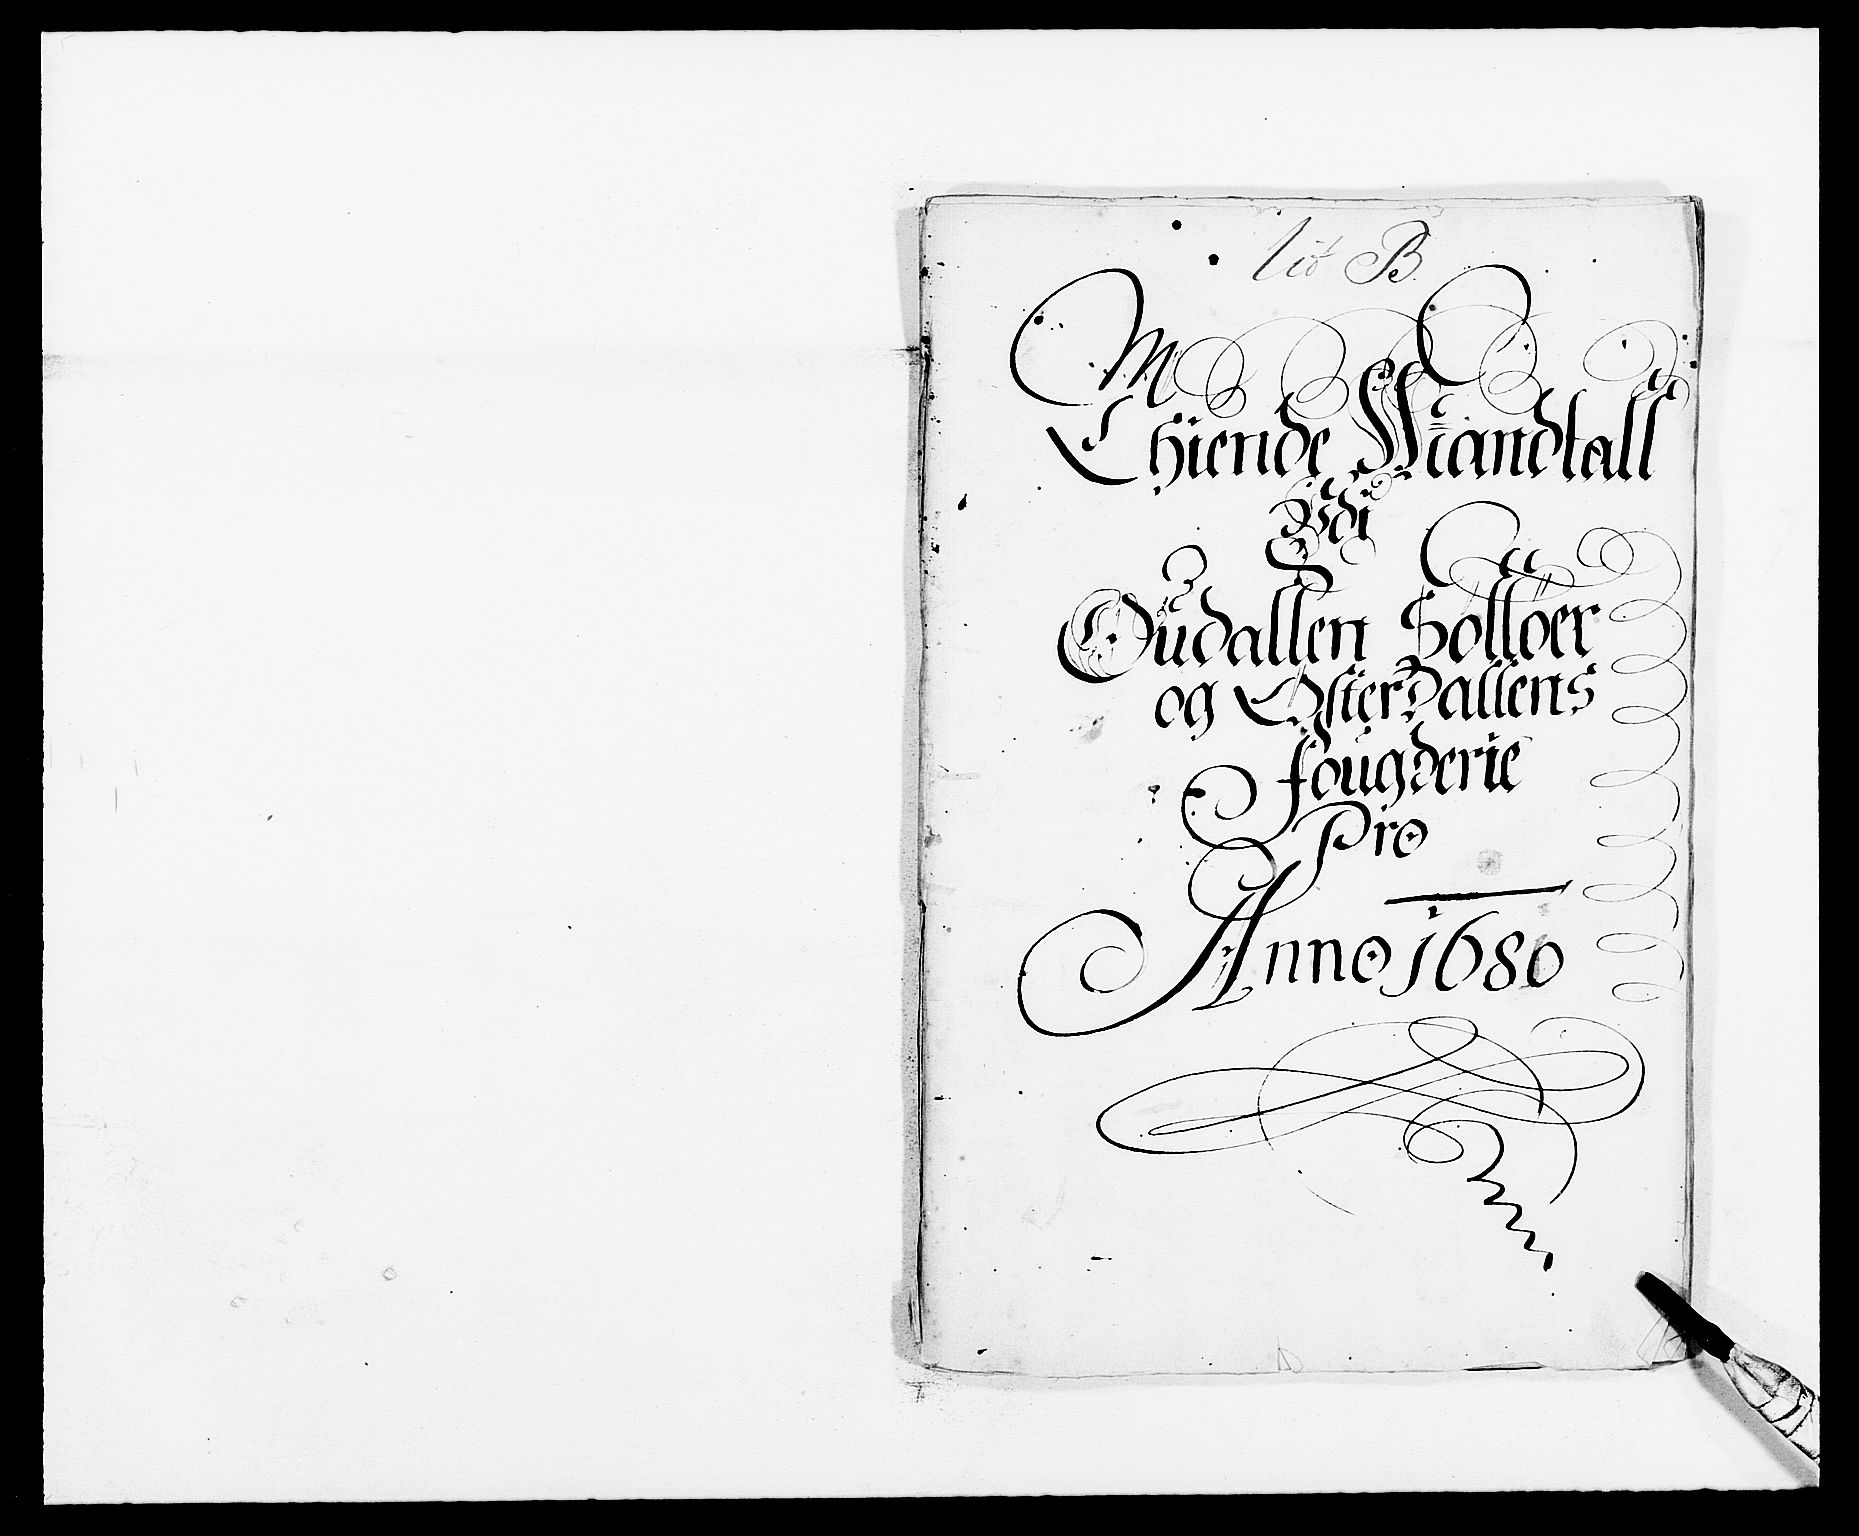 Lit B.
Thiende Mandtall
Udi
Gudallen Solløer
og Østerdallens
fougderie
Pro
Anno 1680